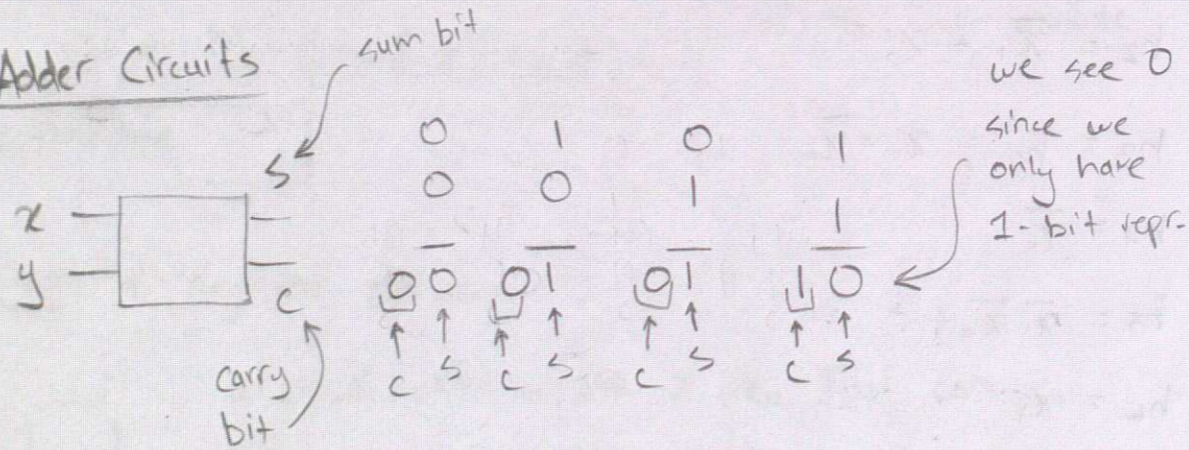 Adder Circuits
sum bit
S
x
y
C
carry
bit
0 1 0 1
0 0 1 1
00 01 01 10
C S C S C S C S
we see 0
since we
only have
1-bit repr.